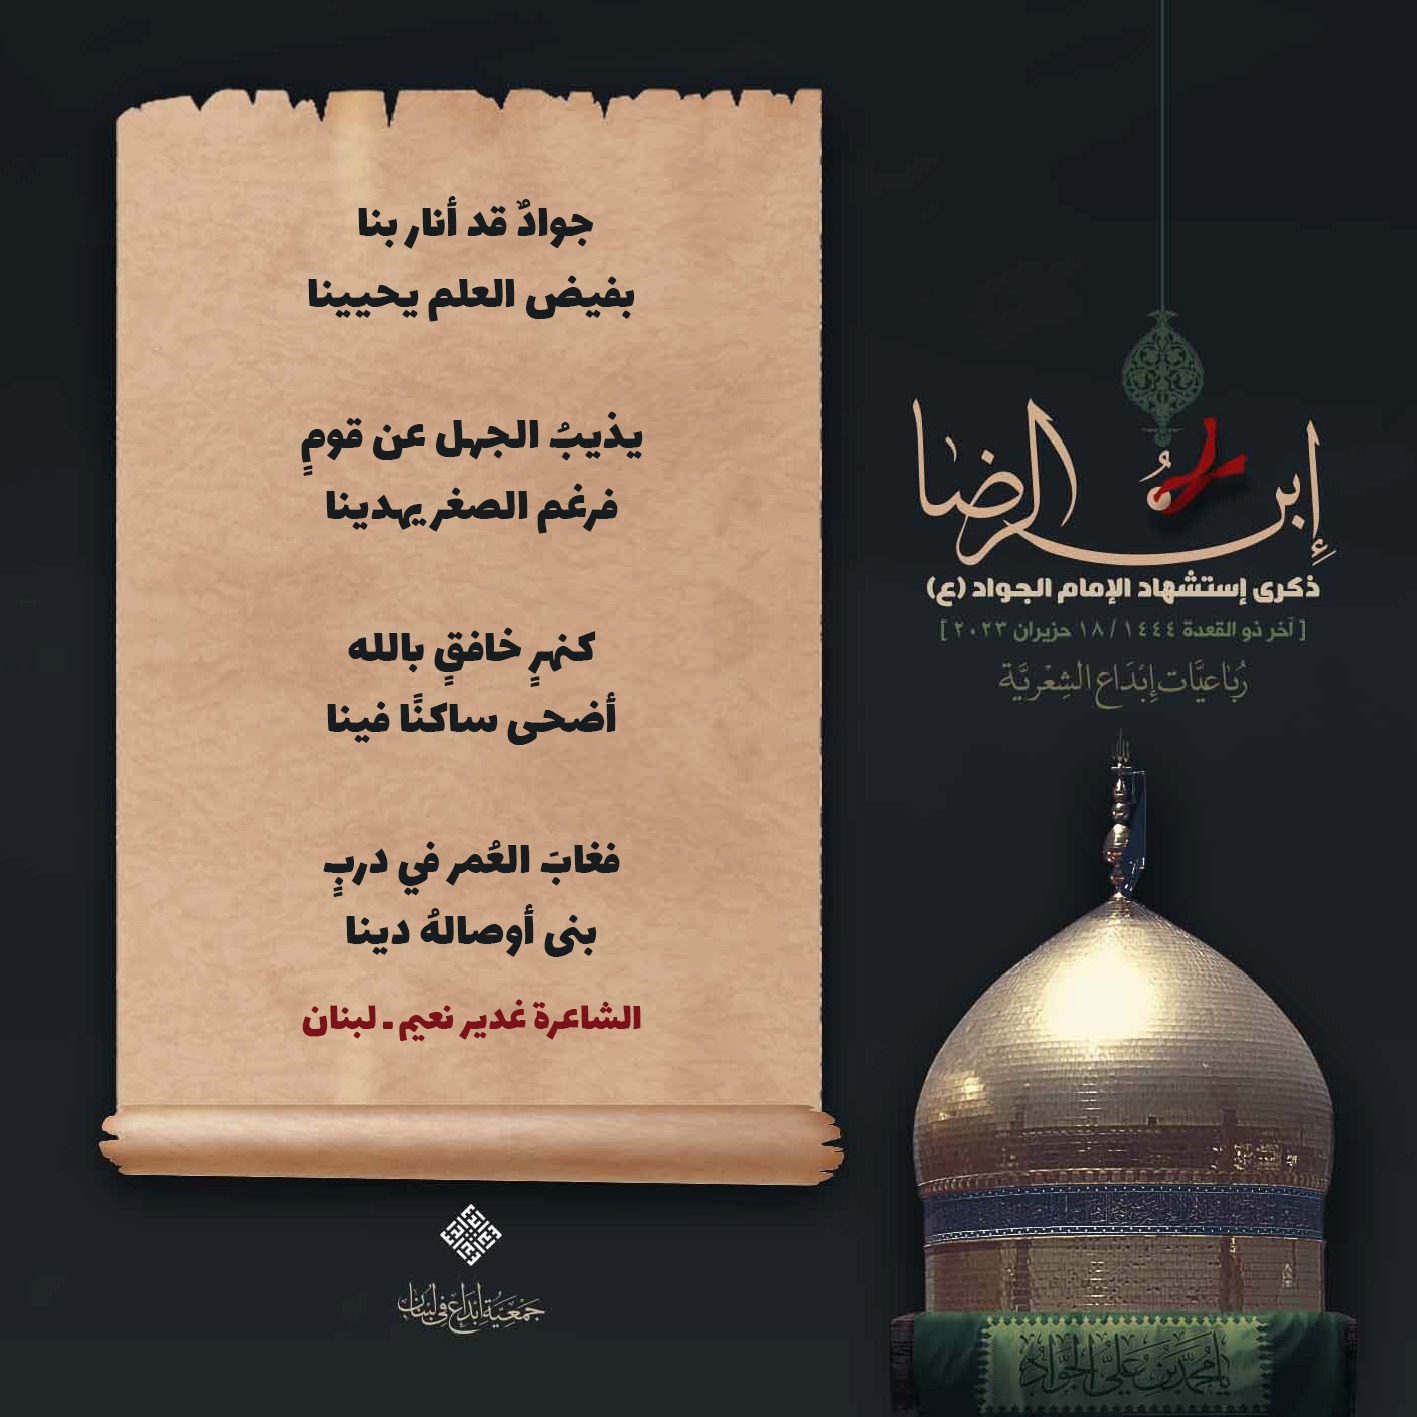 إبنُ الرضا
ذكرى إستشهاد الإمام الجواد (ع)
[ آخر ذو القعدة ١٤٤٤ / ١٨ حزيران ٢٠٢٣ ]
رُبَاعيَّات إِبْدَاع الشِعْريَّة
جوادٌ قد أنار بنا
بفيض العلم يحيينا
يذيبُ الجهل عن قومٍ
فرغم الصغر يهدينا
كنهرٍ خافقٍ بالله
أضحى ساكنًا فينا
فغابَ العُمر في دربٍ
بنى أوصالهُ دينا
الشاعرة غدير نعيم - لبنان
جَمْعِيَّة إبْدَاع في لبنان
يا محمد بن علي الجواد